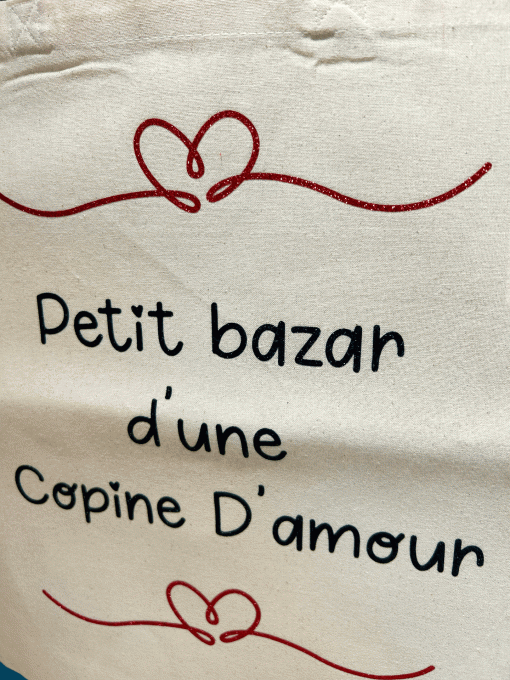 Petit bazar
d'une
Copine D'amour